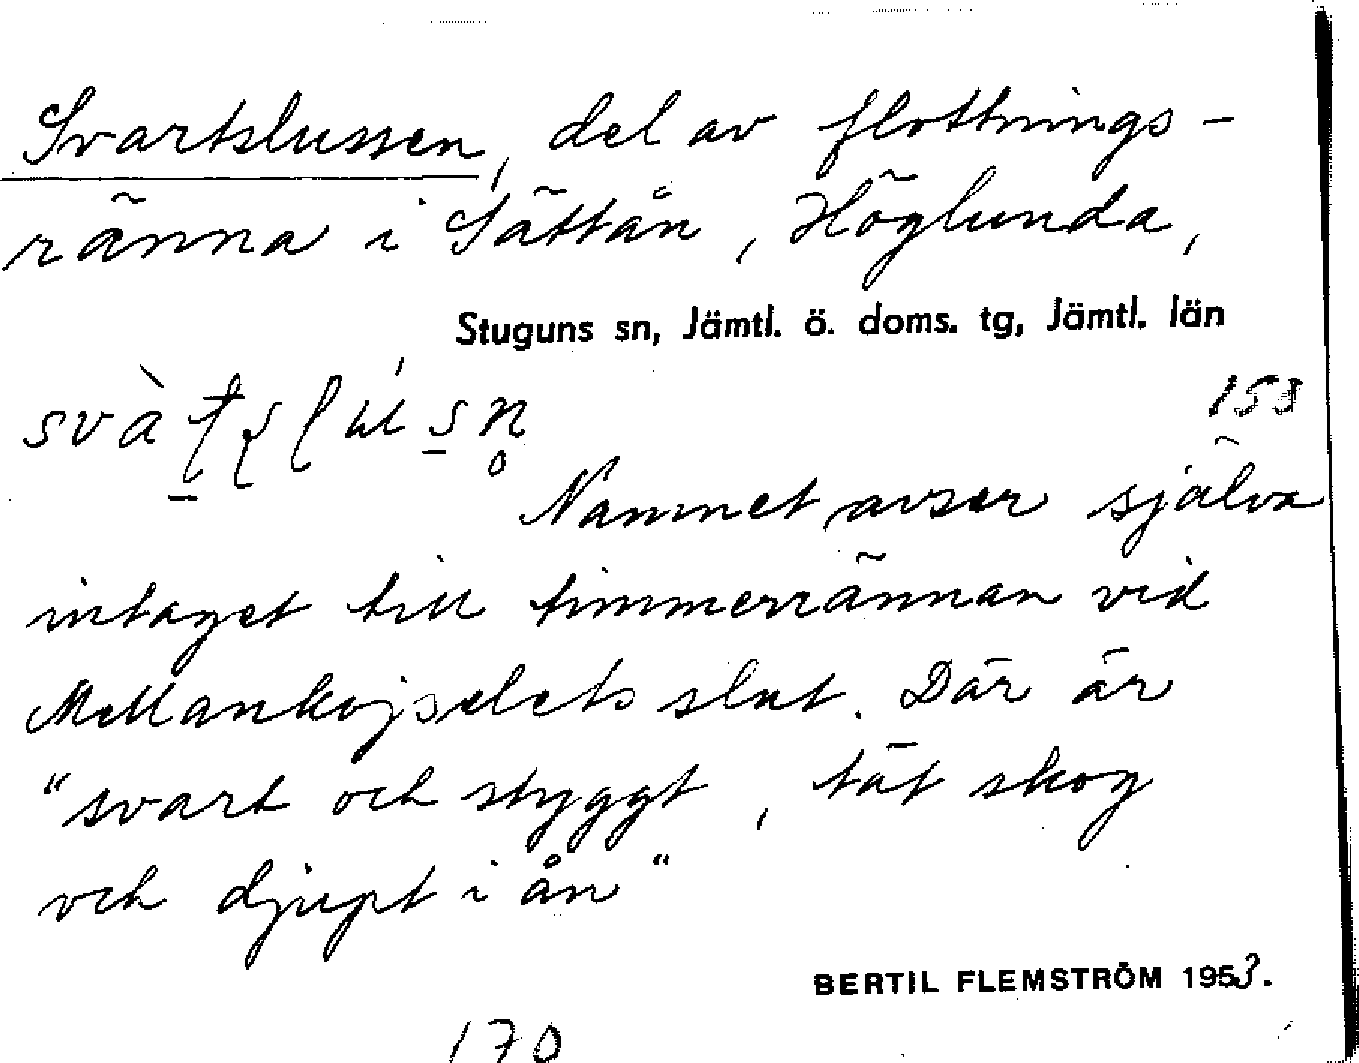 Svartslussen, del av flottnings-
ränna i Sättån, Höglunda,
Stuguns sn, Jämtl. ö. doms. tg, Jämtl. län
158
Namnet avser själva
intaget till timmerrännan vid
Mellankojselets slut. Där är
"svart och styggt, tät skog
och djupt i ån"
BERTIL FLEMSTRÖM 1953.
170